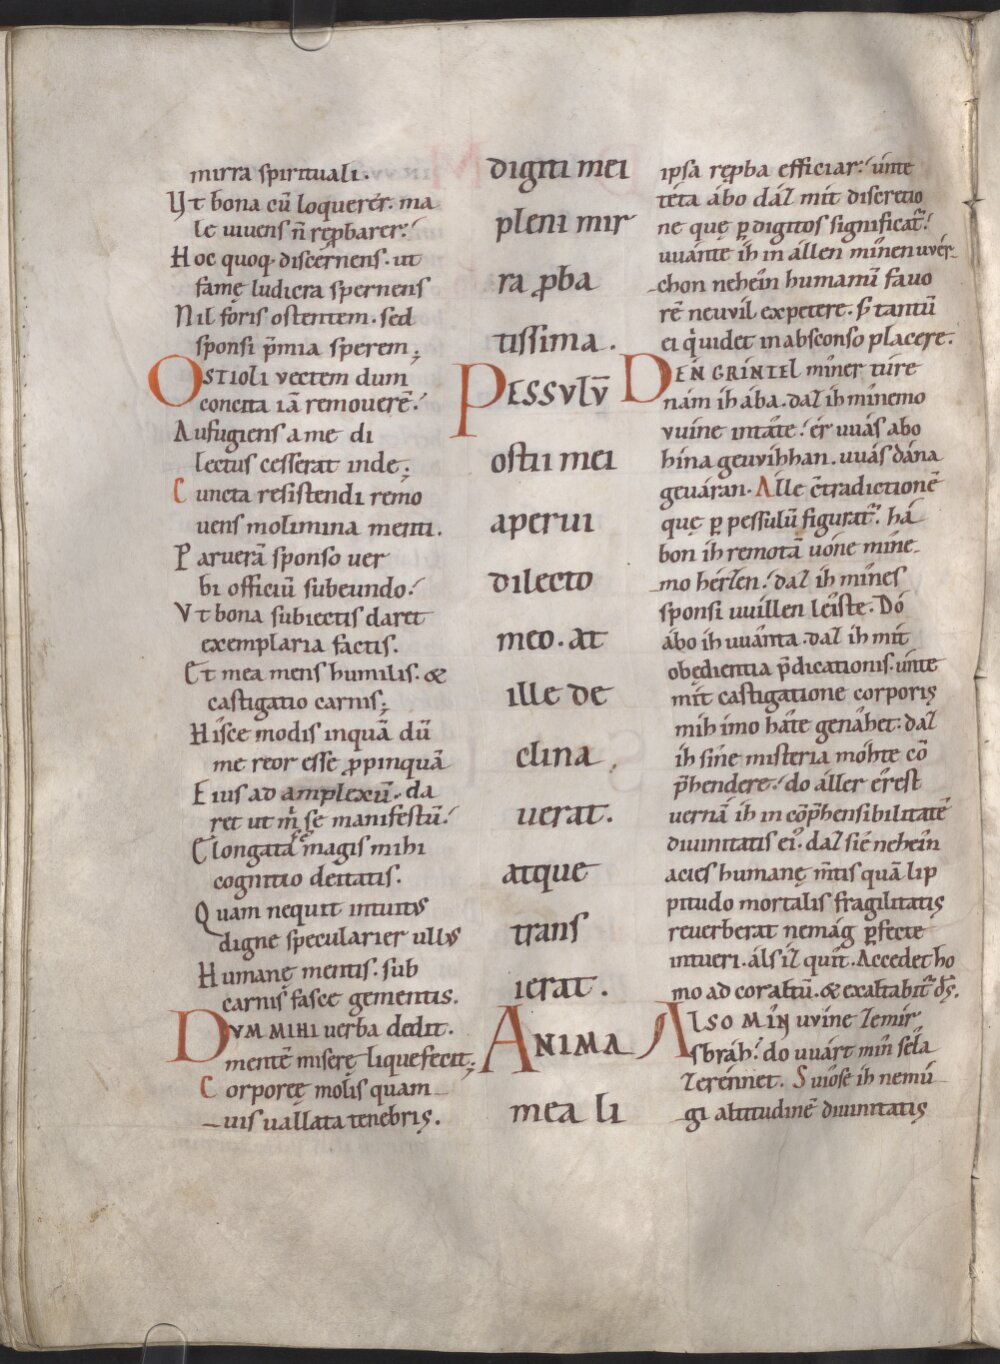 mirra spirituali.
Ut bona cū loquerér. ma
le uiuens ñ reꝓbarer:
Hoc quoq. discérnens. ut
famę ludicra spernens
Nil foris ostentem. sed
sponsi p̄mia sperem;
OSTIOLI vectem dum
concita iā removerē:
Aufugiens a me di
lectus cesserat inde;
Cuncta resistendi remo
uens molimina menti.
Paruerā sponso ver
bi officiū subeundo:
Vt bona subiectis daret
exemplaria factis.
Et mea mens humilis. &
castigatio carnis;
Hisce modis inquā dū
me reor esse ꝓpinquā
Eius ad amplexū. da
ret ut m̊ se manifestū:
Elongata magis mihi
cognitio deitatis.
Quam nequit intuitus
digne specularier ullus
Humanę mentis. sub
carnis fasce gementis.
DVM MIHI uerba dedit.
mentē miserę liquefecit;
Corporeę molis quam
uis uallata tenebris.
digiti mei
pleni mir
ra ꝓba
tissima.
PESSVLV̄
ostii mei
aperui
dilecto
meo. at
ille de
clina
uerat.
atque
trans
ierat.
ANIMA
mea li
ipsa reꝓba efficiar: únte
téta ábo dáz mit discretio
ne quę ꝑ digitos significat̄:
uuánte ih in állen mînen uuér
chon nehein humanū fauo
rē neuvil expetere. s̄ tantū
ei q̊ uidet in absconso placere.
DEN GRINTEL mîner túre
nám ih ába. daz ih mînemo
vuine intâte: ér uuás ábo
hina geuvihhan. uuás dána
geuáran. Alle c̄tradictionē
quę ꝑ pessulū figurat̄. há
bon ih remotā uóne mîne
mo hérzen: daz ih mînes
sponsi uuillen leiste. Dó
ábo ih uuánta. daz ih mit
obędientia p̄dicationis. únte
mit castigatione corporis
mih imo hâte genâhet: daz
ih sine misteria móhte cō
p̄hendere: do áller érest
uernā ih incōp̄hensibilitatē
diuinitatis ei᾽. daz sie nehein
acies humanę m̄tis quā lip
pitudo mortalis fragilitatis
reuerberat nemág ꝑfecte
intueri. álsiz quit. Accedet ho
mo ad cor altū. & exaltabit̄ ds̄.
ALSO MIN uvine zemir
sbráh: do uuárt mîn sêla
zerénnet. Suuiose ih nemú
gi altitudinē diuinitatis